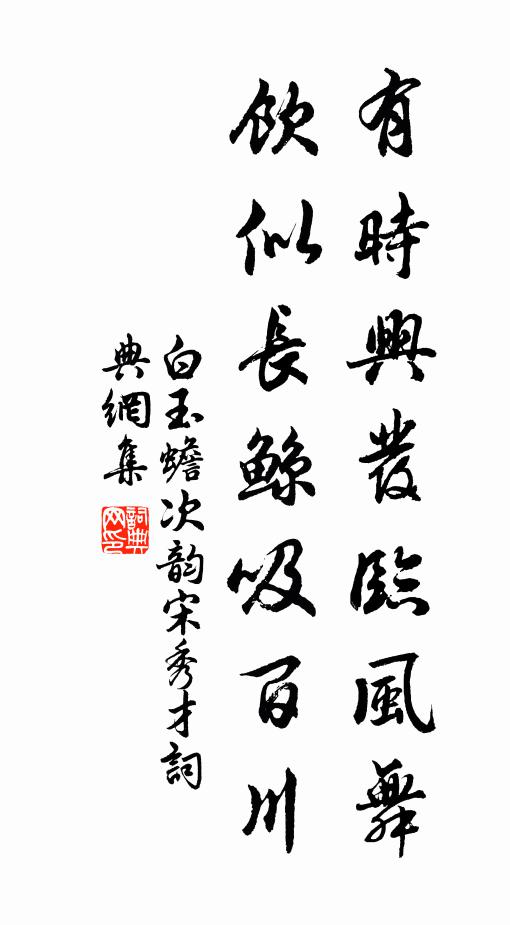 有時興發臨風舞
飲似長鯨吸百川
白玉蟾次韵宋秀才詞
典網集
詞典
网印